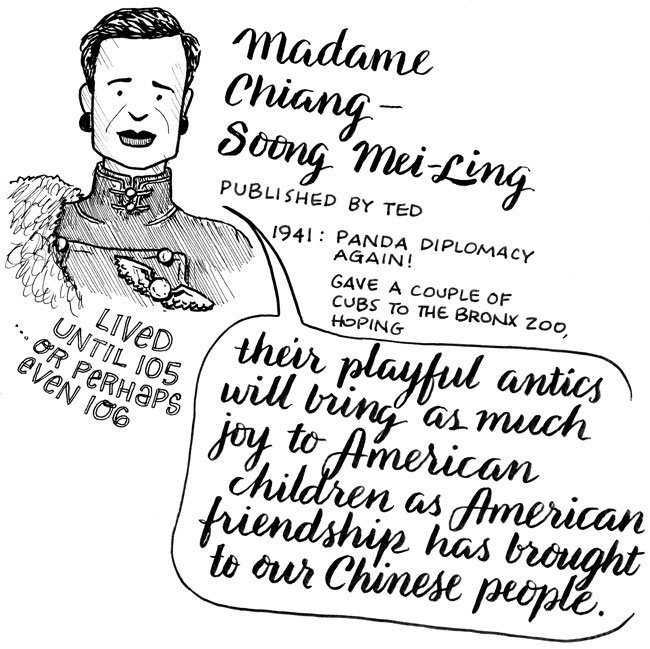 Madame
Chiang –
Soong Mei-Ling
PUBLISHED BY TED
1941: PANDA DIPLOMACY
AGAIN!
GAVE A COUPLE OF
CUBS TO THE BRONX ZOO,
HOPING
their playful antics
will bring as much
joy to American
children as American
friendship has brought
to our Chinese people.
LIVED
UNTIL 105
... OR PERHAPS
EVEN 106